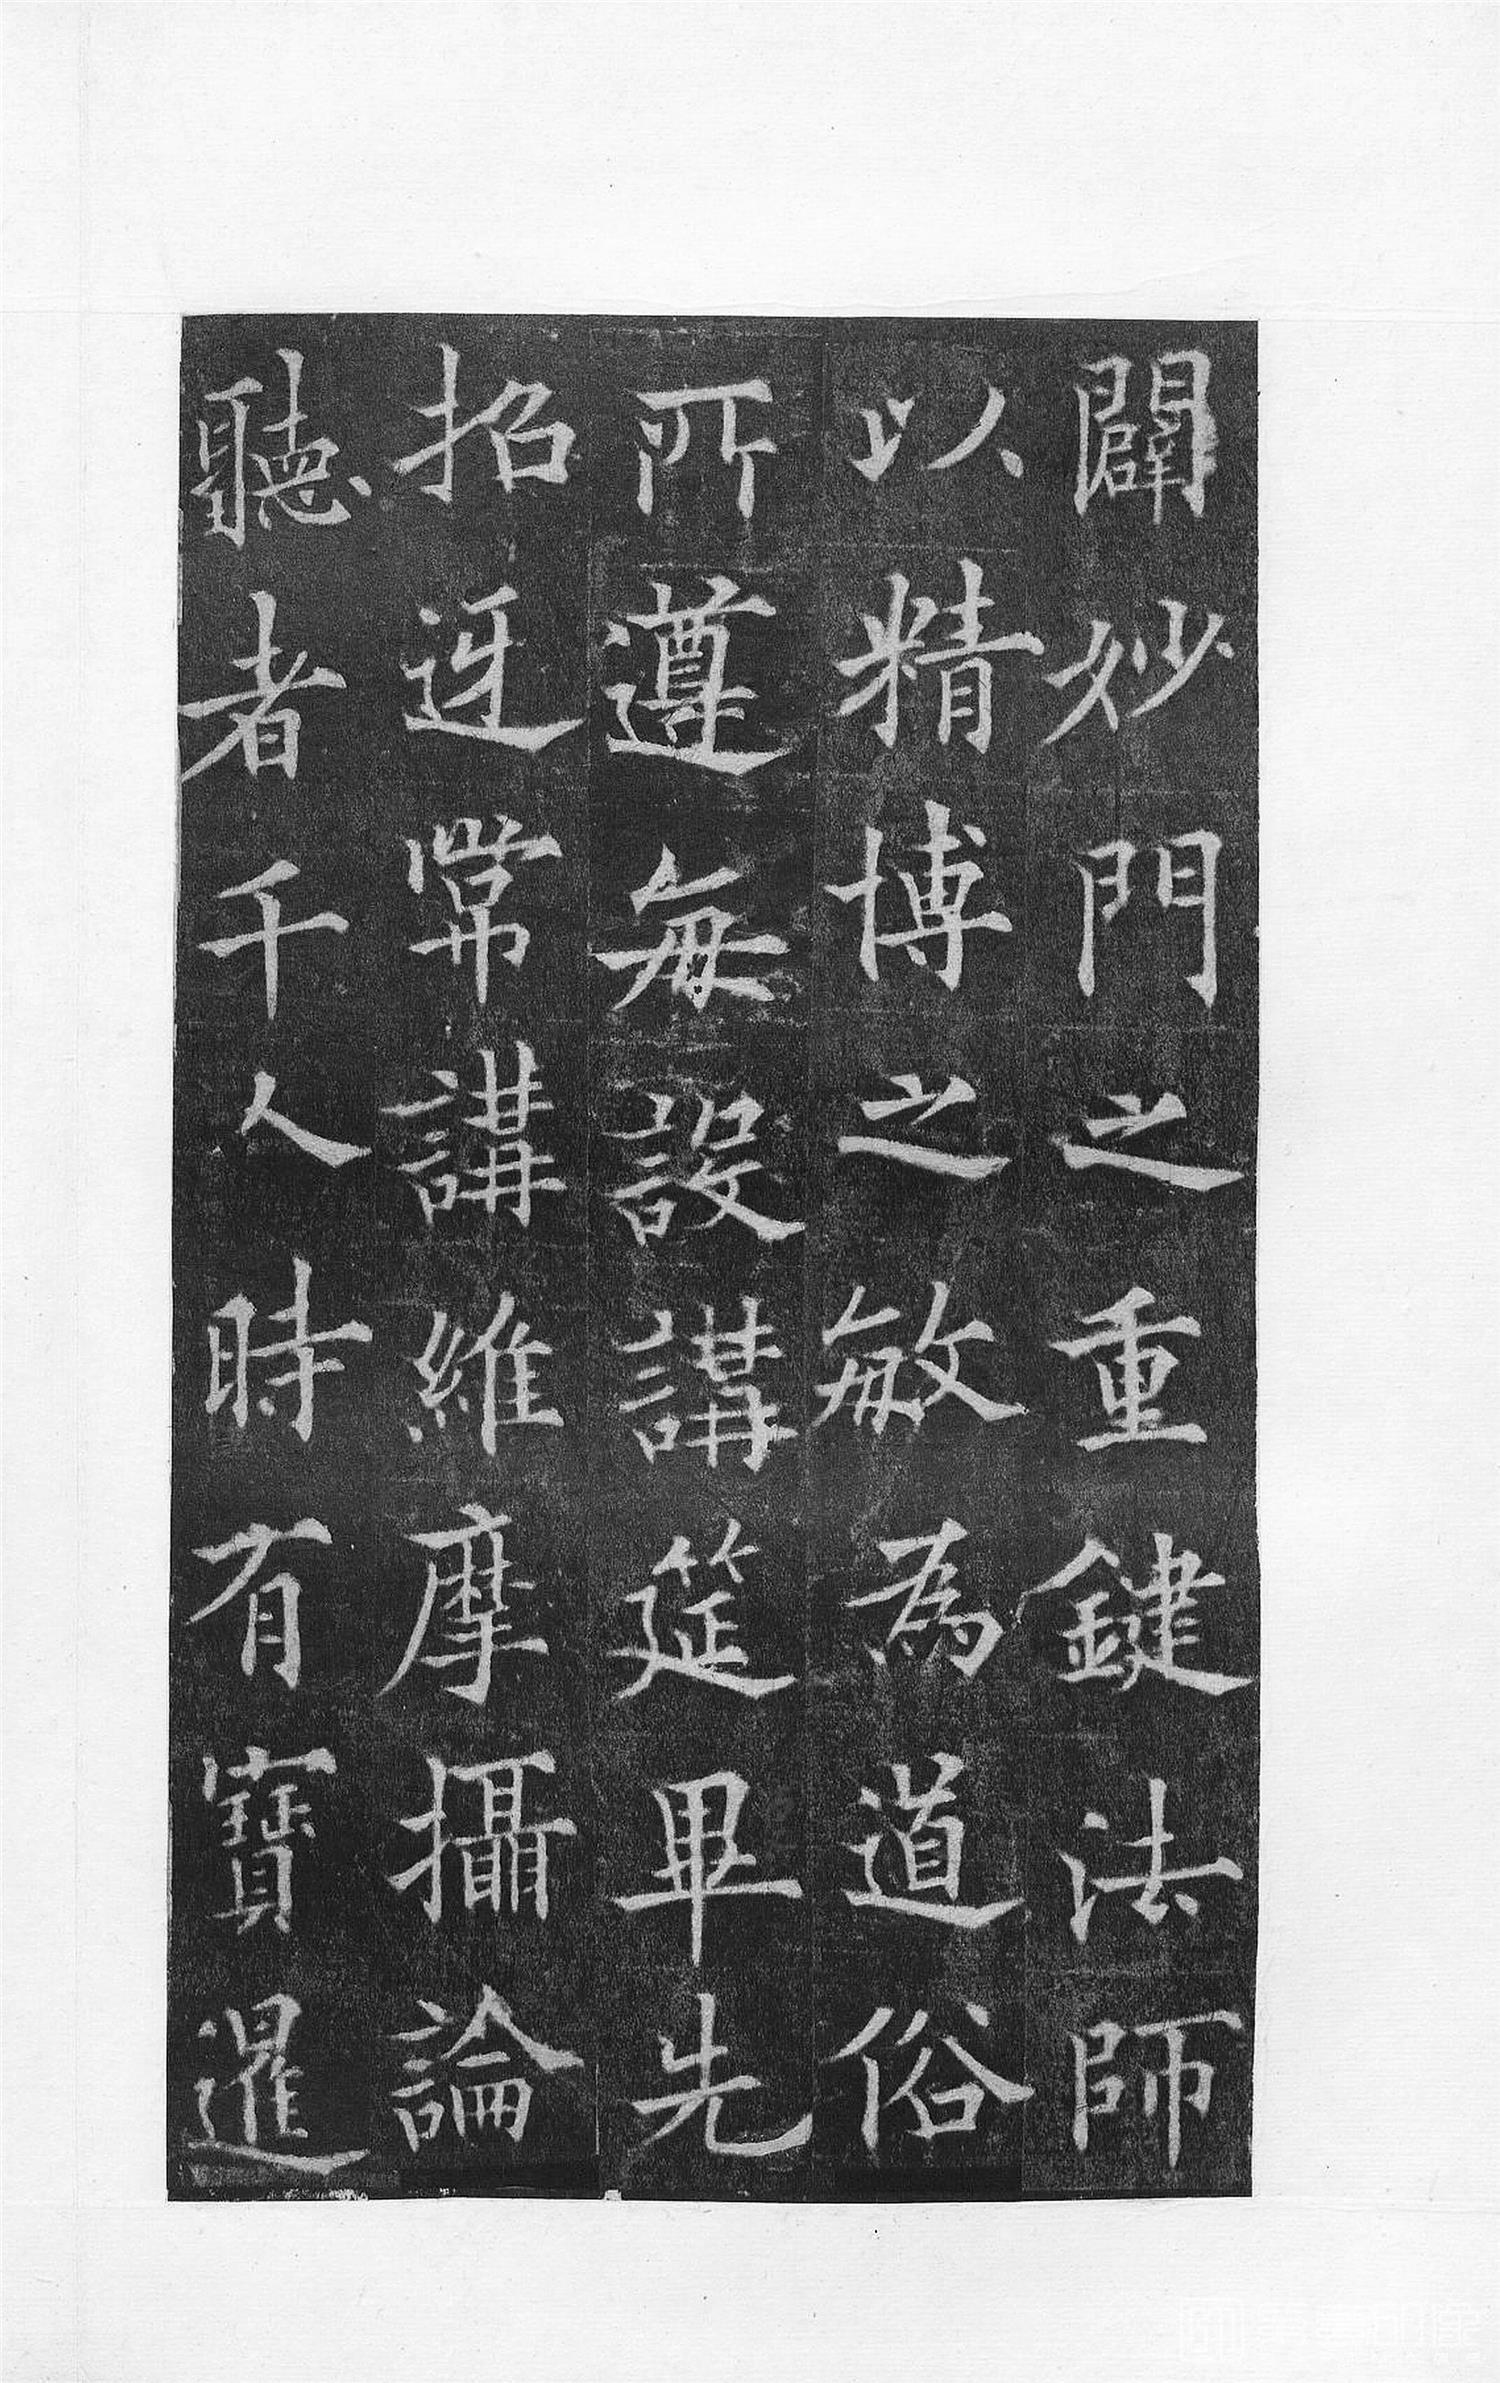 闢妙門之重鍵法師
以精博之敏為道俗
所遵每設講筵畢先
招迓常講維摩攝論
聽者千人時有寶暹